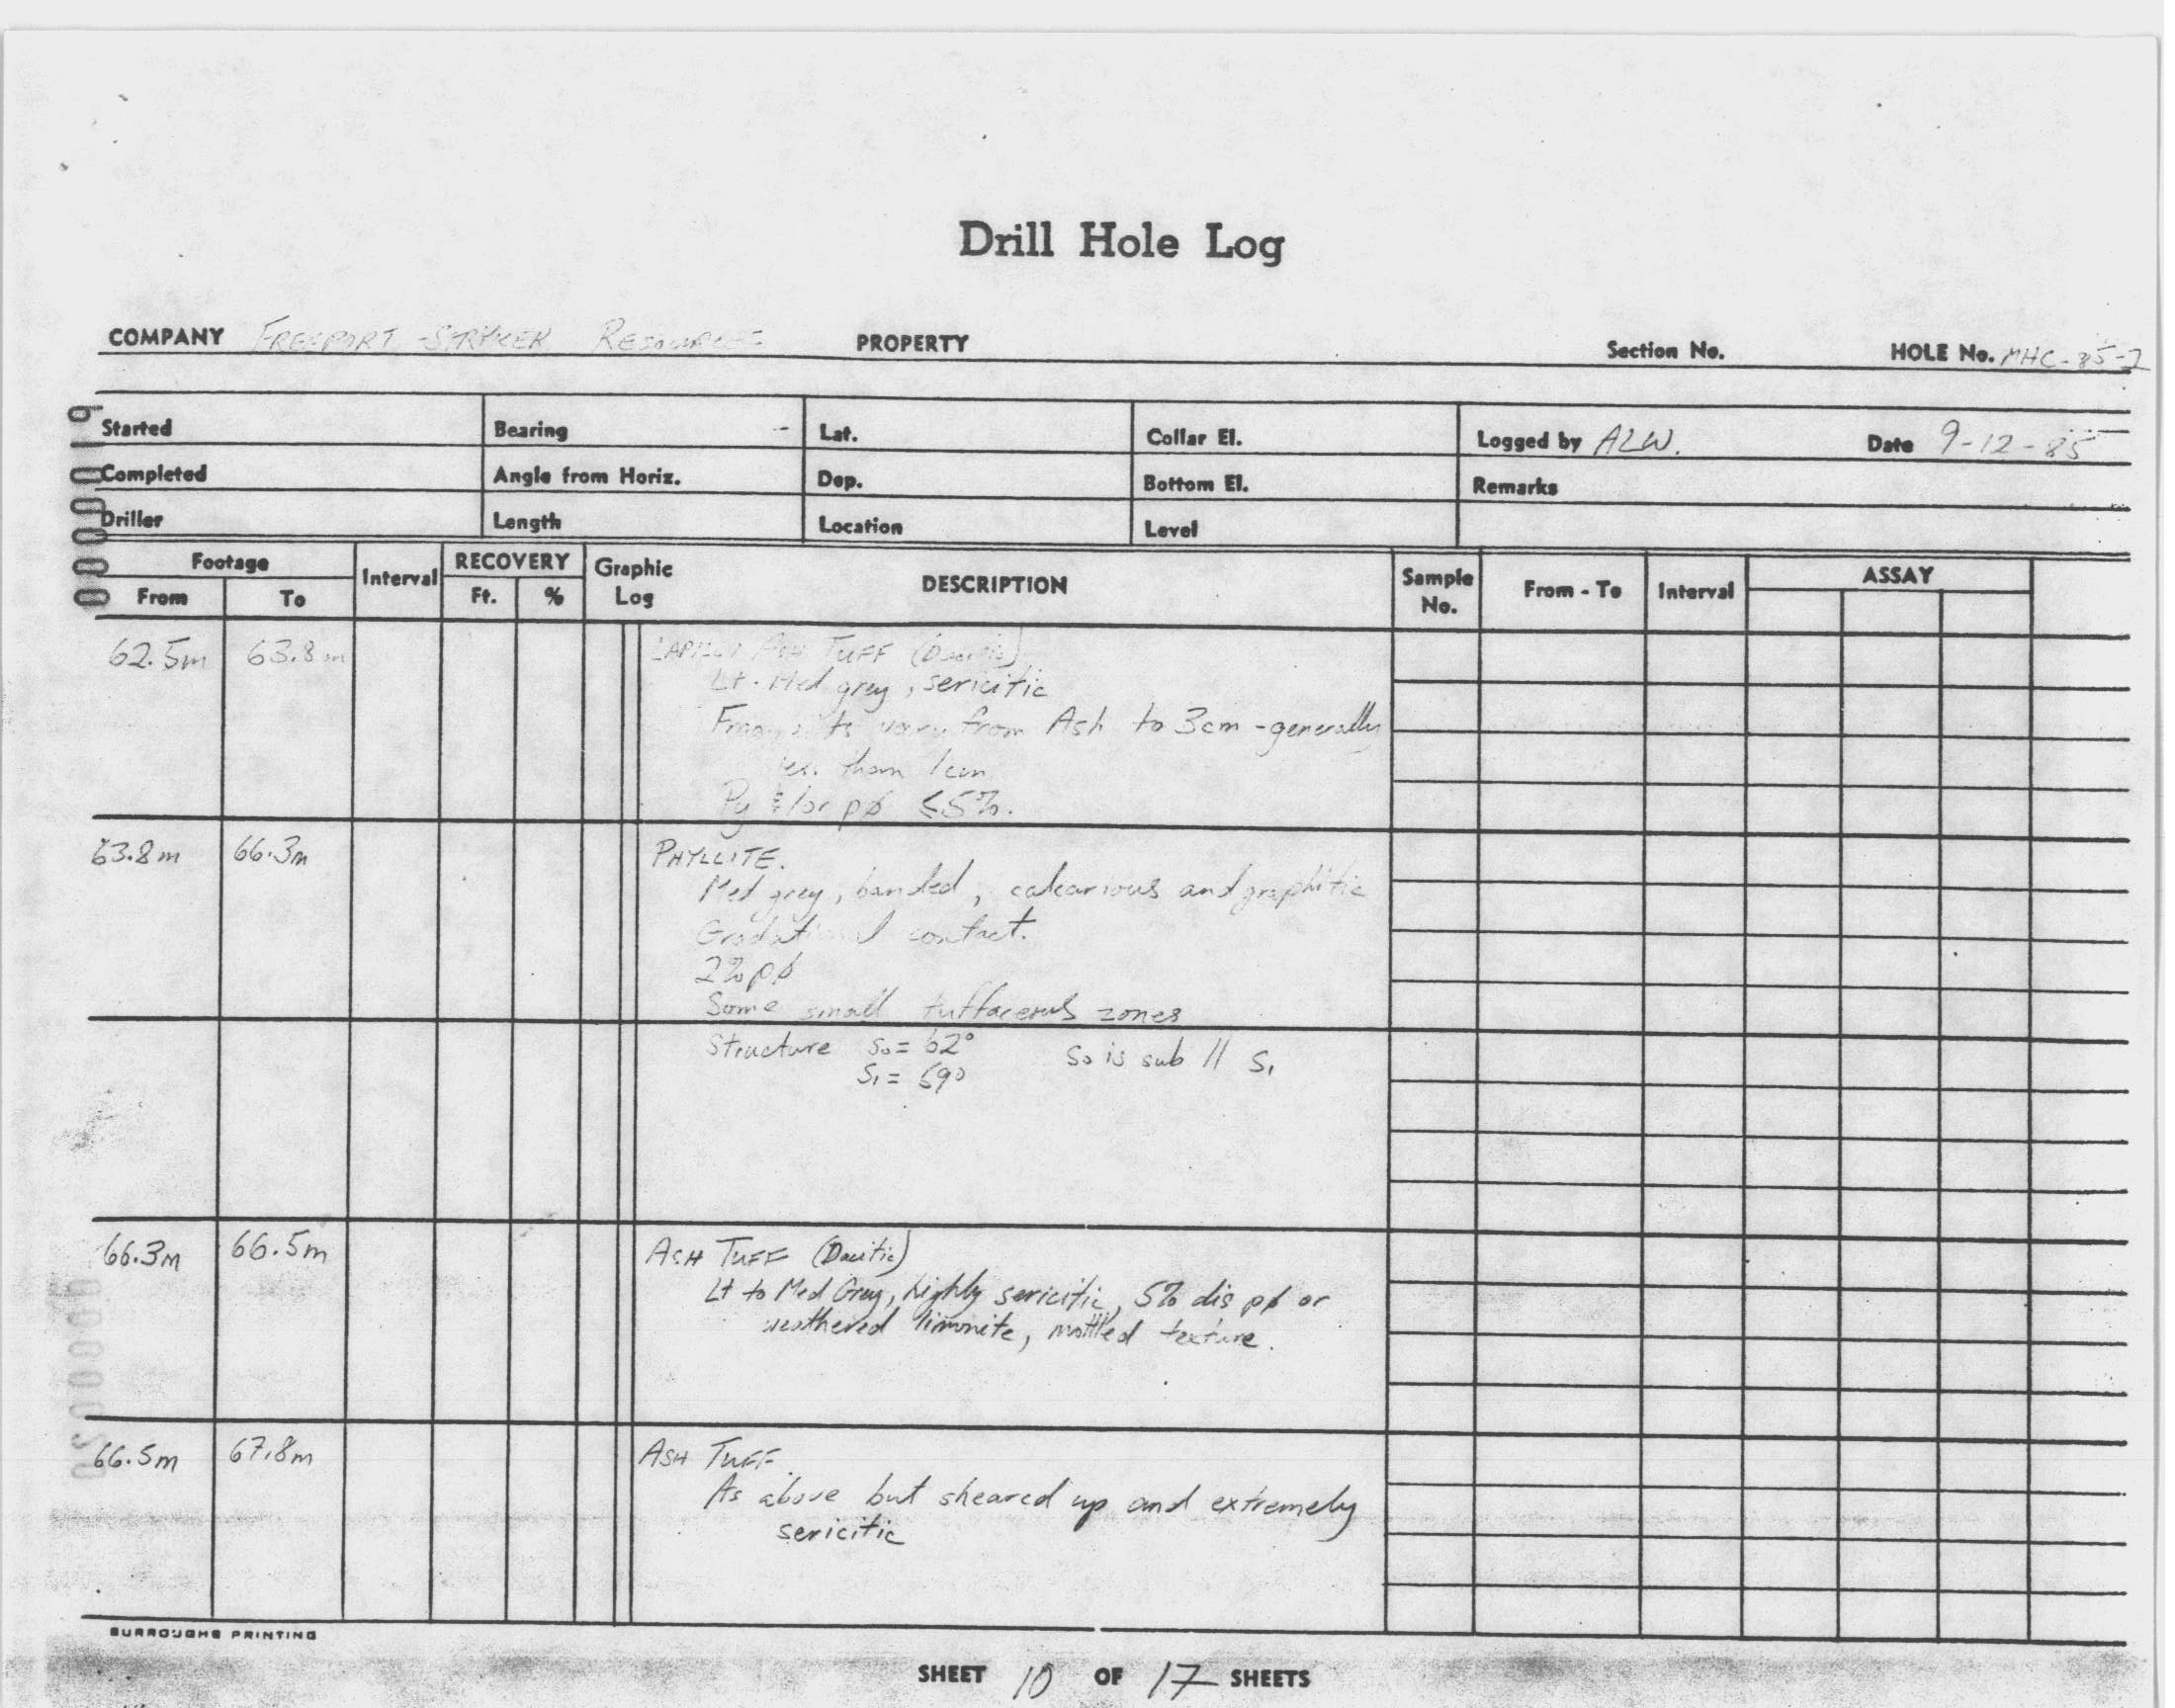 Drill Hole Log
COMPANY FREEPORT - STRYKER RESOURCES PROPERTY Section No. HOLE No. MHC-85-2
Started Bearing - Lat. Collar El. Logged by ALW. Date 9-12-85
Completed Angle from Horiz. Dep. Bottom El. Remarks
Driller Length Location Level
Footage Interval RECOVERY Graphic Log DESCRIPTION Sample No. From - To Interval ASSAY
From To Ft. %
62.5m 63.8m LAPILLI ASH TUFF (Dacitic)
Lt-Med grey, sericitic
Fragments vary from Ash to 3cm - generally
less than 1cm
Py &/or pø ≤5%.
63.8m 66.3m PHYLLITE.
Med grey, banded, calcarious and graphitic
Gradational contact.
2% pø
Some small tuffaceous zones
Structure S₀ = 62° S₀ is sub // S₁
S₁ = 59°
66.3m 66.5m ASH TUFF (Dacitic)
Lt to Med Grey, highly sericitic, 5% dis pø or
weathered limonite, mottled texture.
66.5m 67.8m ASH TUFF.
As above but sheared up and extremely
sericitic
BURROUGHS PRINTING
SHEET 10 OF 17 SHEETS